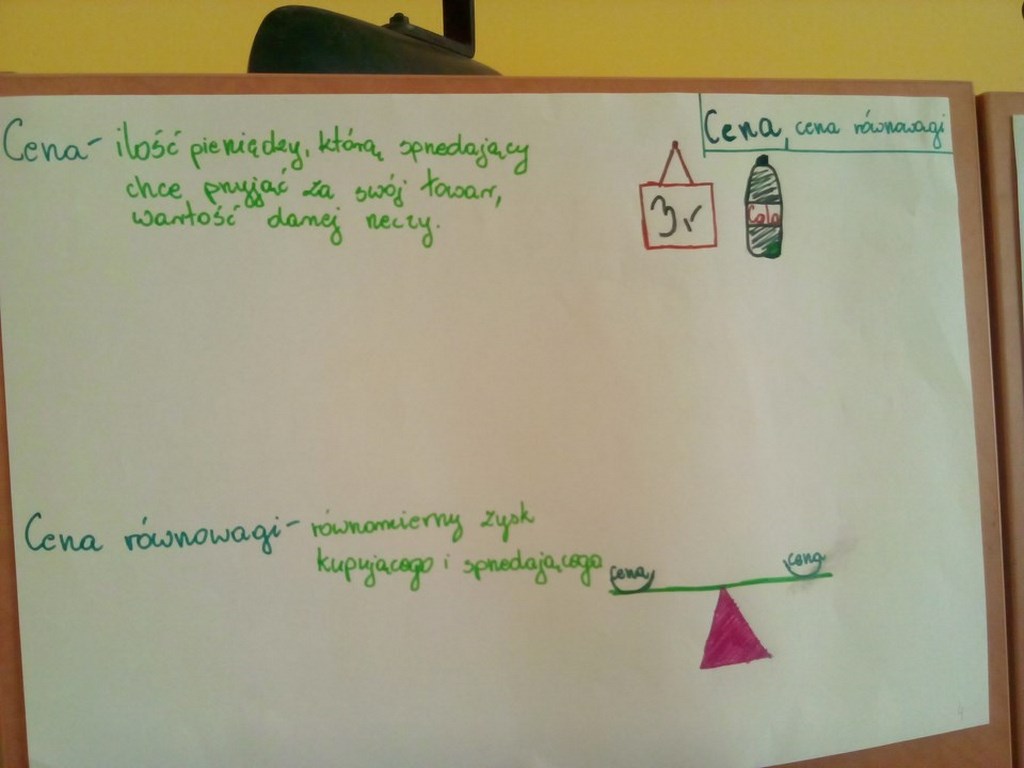 Cena, cena równowagi
Cena - ilość pieniędzy, którą sprzedający
chce przyjąć za swój towar,
wartość danej rzeczy.
3 
Cola
Cena równowagi - równomierny zysk
kupującego i sprzedającego
cena
cena